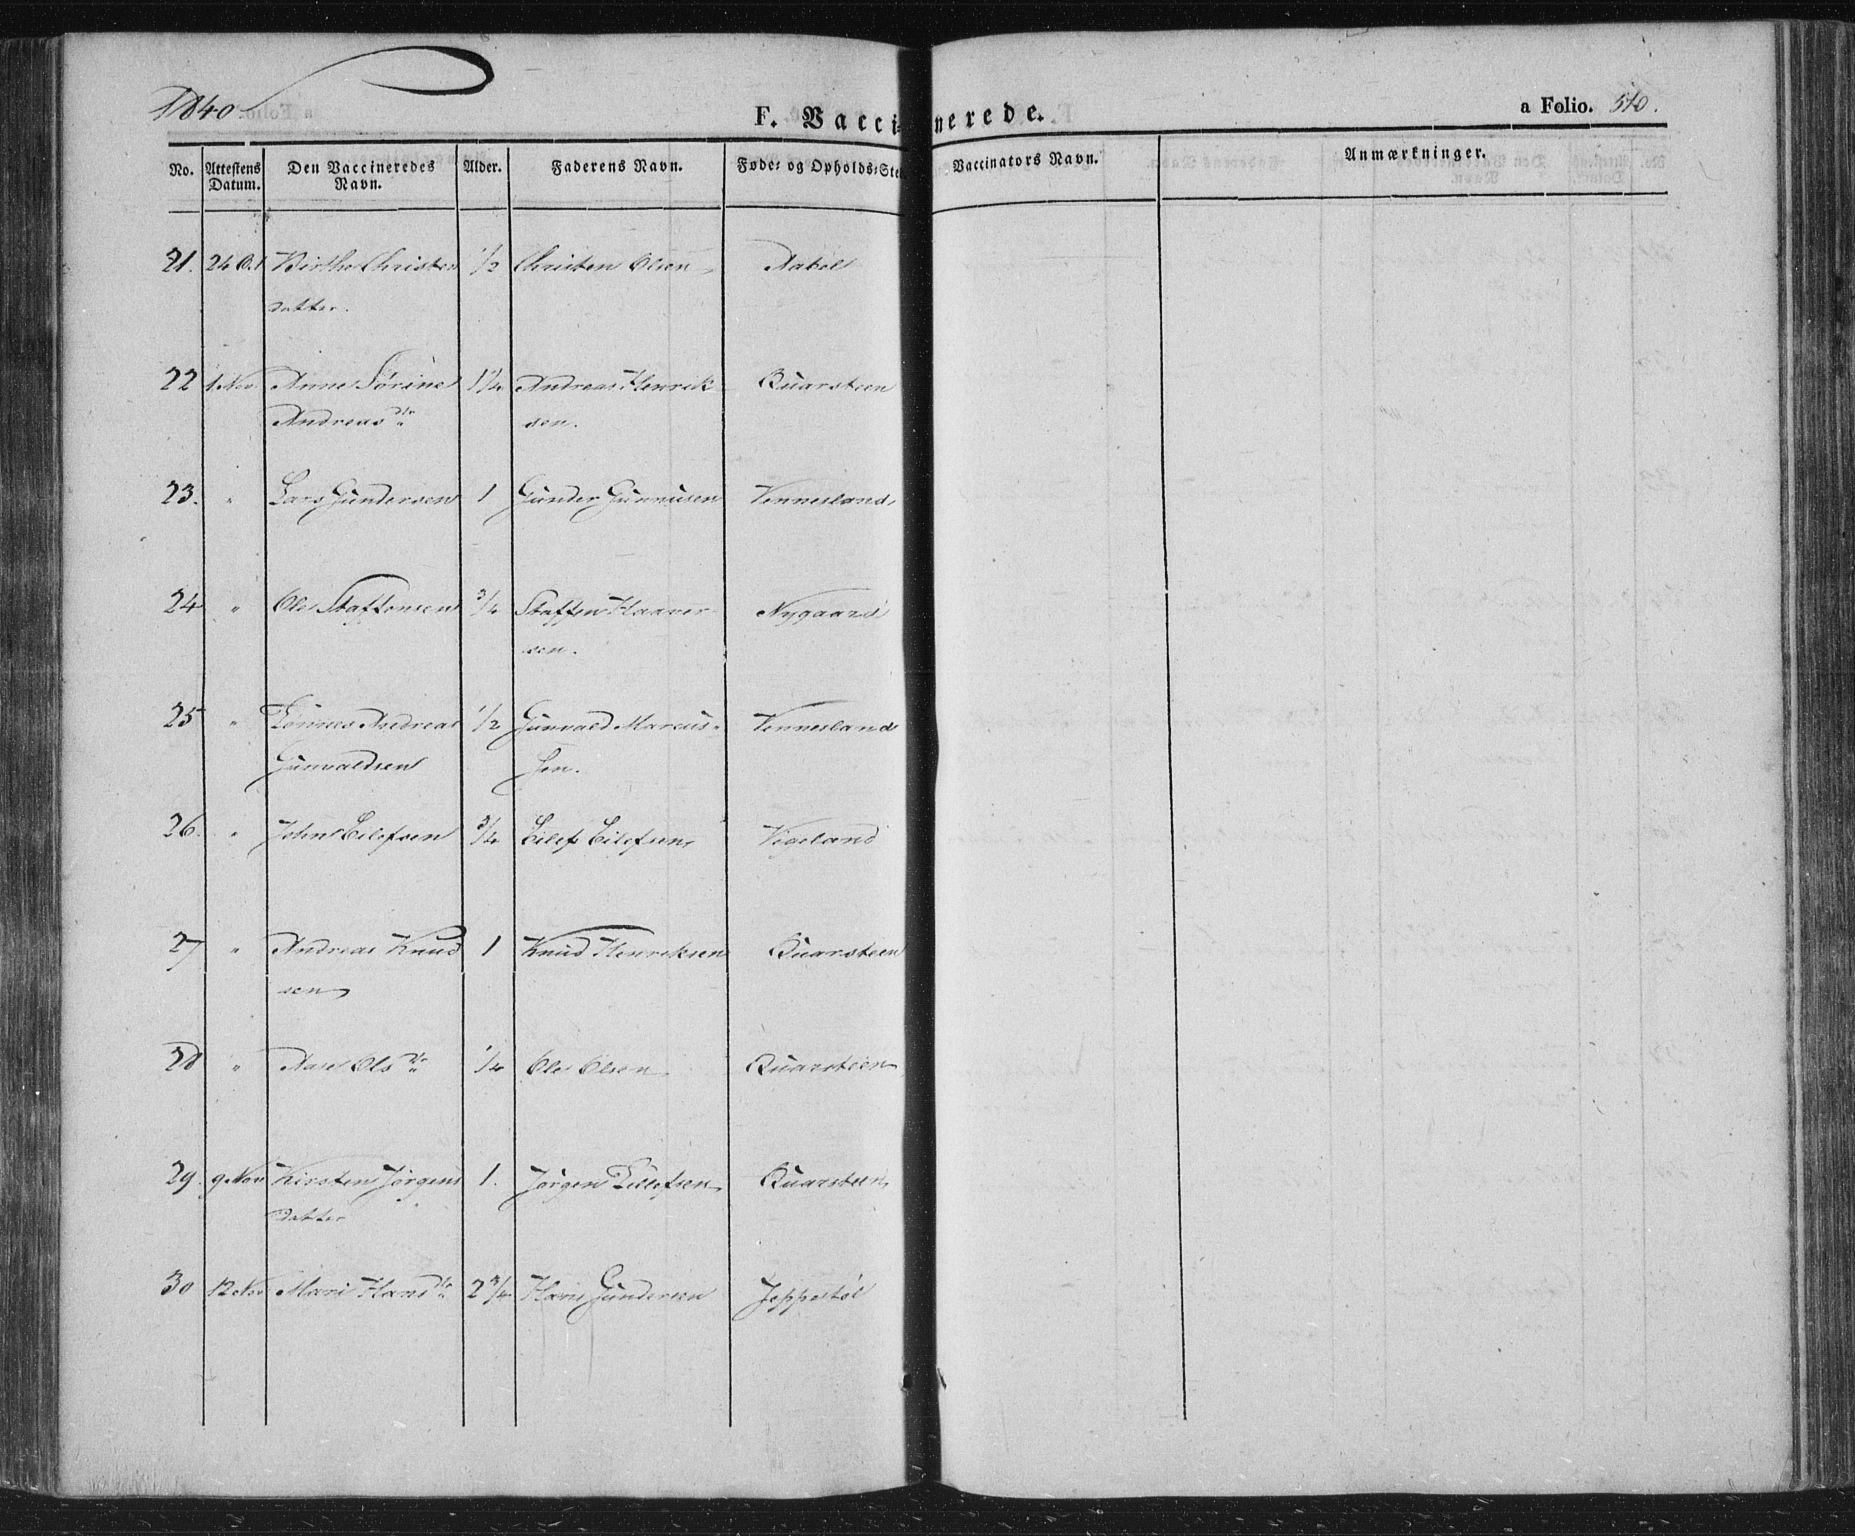 1840
F. Vaccinerede.
a Folio. 510.
No. Attestens Datum. Den Vaccineredes Navn. Alder. Faderens Navn. Føde- og Opholds-Sted Vaccinators Navn. Anmærkninger.
21. 24 Oct Birthe Christen 1/2 Christen Olsen Aabel
datter.
22 1 Nov Anne Sørine 1 1/4 Andreas Henrik Quarsteen
Andreas dtr sen.
23. " Lars Gundersen 1 Gunder Gunnusen Vennesland
24 " Ole Staffensen 3/4 Staffen Haaver Nygaard
sen.
25 " Tønnes Andreas 1/2 Gunvald Marcus- Vennesland
Gunvaldsen sen.
26. " John Eilefsen 3/4 Eilef Eilefsen Vigeland
27 " Andreas Knud 1 Knud Henriksen Quarsteen
sen
28 " Aase Ols dtr 1/4 Ole Olsen Quarsteen
29. 9 Nov Kirsten Jørgens 1. Jørgen Eilefsen Quarsteen
datter
30 12 Nov Mari Hans dtr 2 3/4 Hans Gundersen Jeppestøl